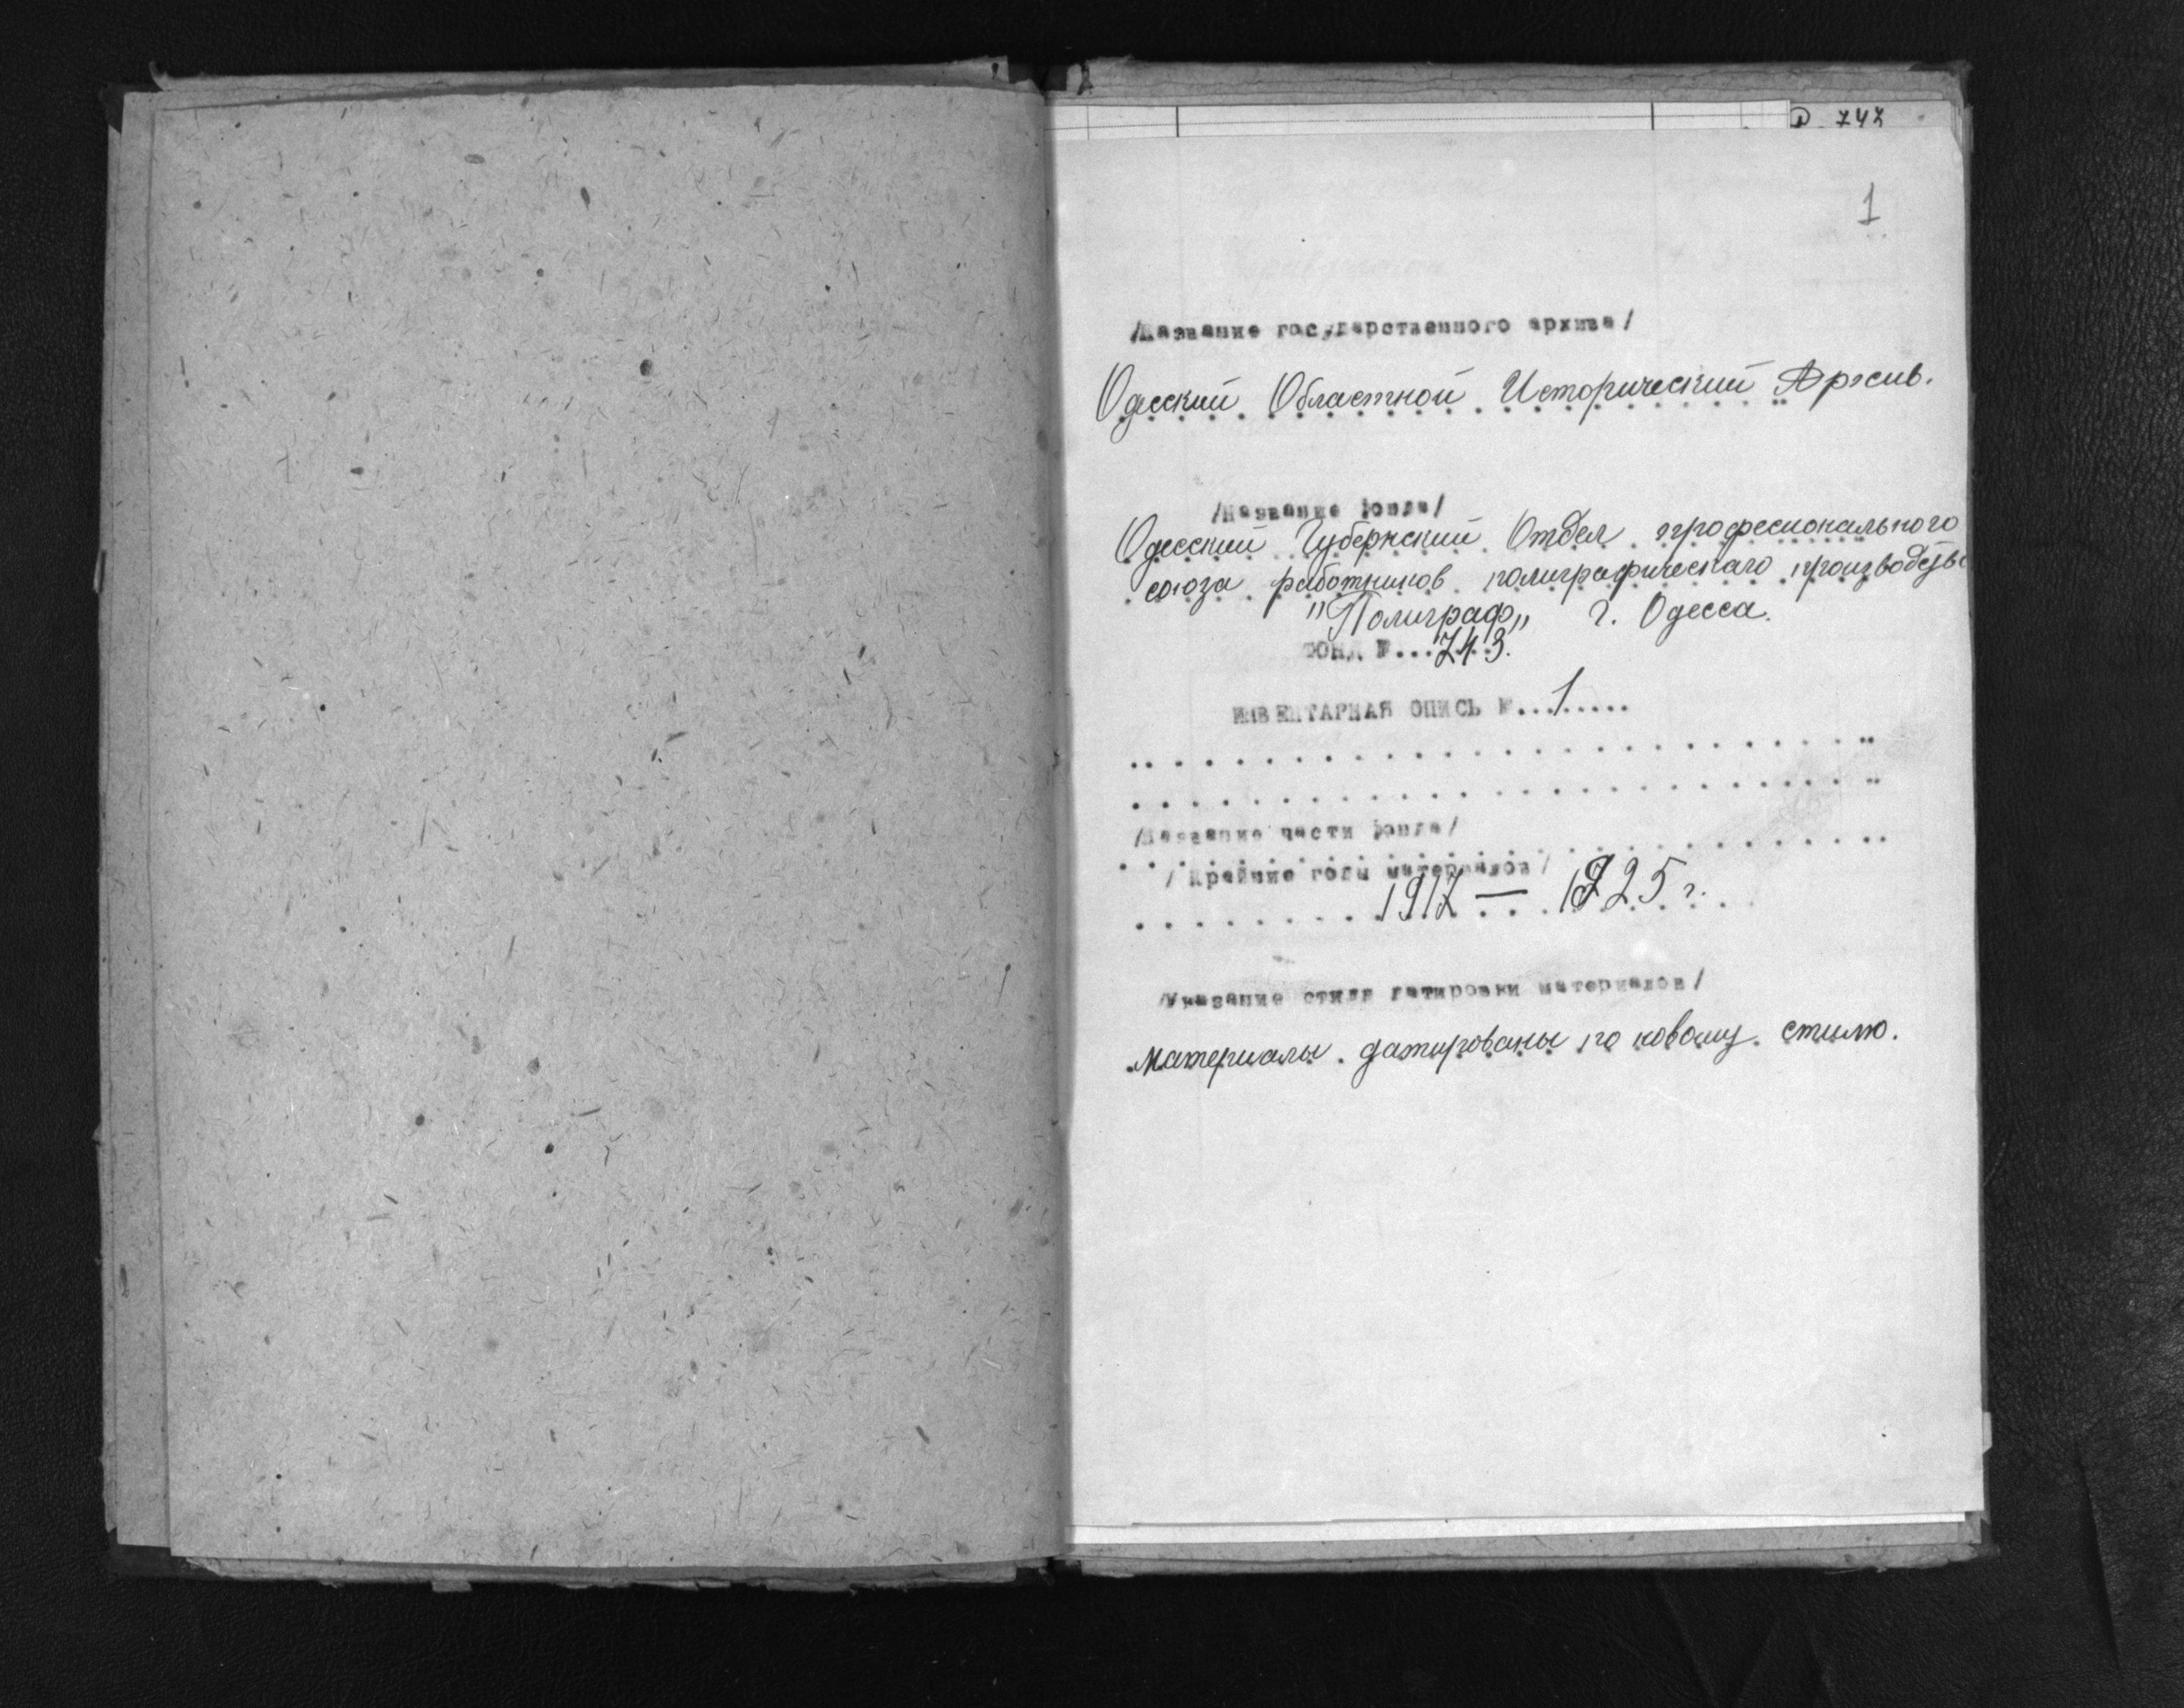 Р. 747
1
/Название государственного архива/
Одесский Областной Исторический Архив.
/Название фонда/
Одесский Губернский Отдел професионального
союза работников полиграфическаго производств
"Полиграф„ г. Одесса.
ФОНД №...743.
ИНВЕНТАРНАЯ ОПИСЬ №...1.....
/Название части фонда/
/Крайние годы материалов/
1917 — 1925 г.
/Указание стиля датировки материалов/
Материалы датированы по новому стилю.